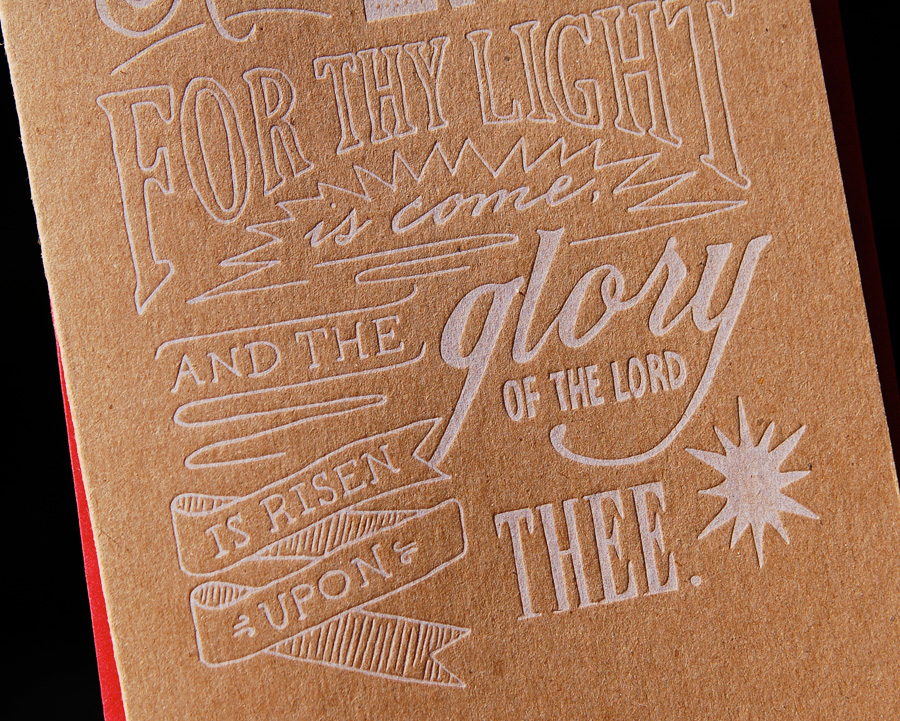 FOR THY LIGHT
is come,
AND THE glory
OF THE LORD
IS RISEN
UPON THEE.